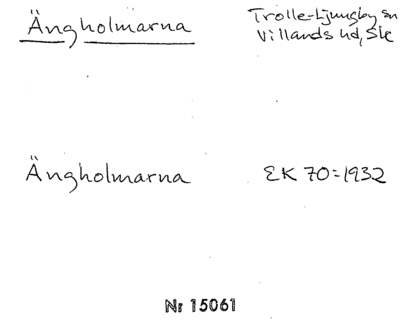 Ängholmarna
Trolle-Ljungby sn
Villands hd, Ske
Ängholmarna
EK 70:1932
Nr 15061